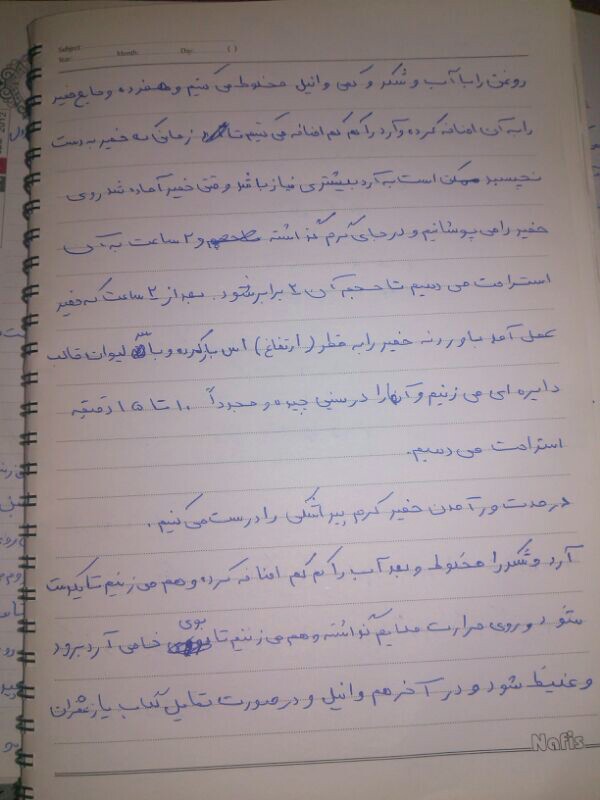 Subject:
Year: Month: Day: ( )
روغن را با آب و شکر و کمی وانیل مخلوط می کنیم و هم زده و مایع خمیر
را به آن اضافه کرده و آرد را کم کم اضافه می کنیم تا زمانی که خمیر به دست
نچسبد ممکن است به آرد بیشتری نیاز باشد وقتی خمیر آماده شد روی
خمیر را می پوشانیم و در جای گرم گذاشته و ۲ ساعت به آن
استراحت می دهیم تا حجم آن ۲ برابر شود. بعد از ۲ ساعت که خمیر
عمل آمد با وردنه خمیر را به قطر (ارتفاع) باز کرده و با لیوان قالب
دایره ای می زنیم و آنها را در سینی چیده و مجدداً ۱۰ تا ۱۵ دقیقه
استراحت می دهیم.
در مدت ور آمدن خمیر کرم پیراشکی را درست می کنیم.
آرد و شکر را مخلوط و بعد آب را کم کم اضافه کرده و هم می زنیم تا یکدست
شود و روی حرارت ملایم گذاشته و هم می زنیم تا بوی خامی آرد برود
و غلیظ شود و در آخر هم وانیل و در صورت تمایل گلاب یا زعفران
Nafis